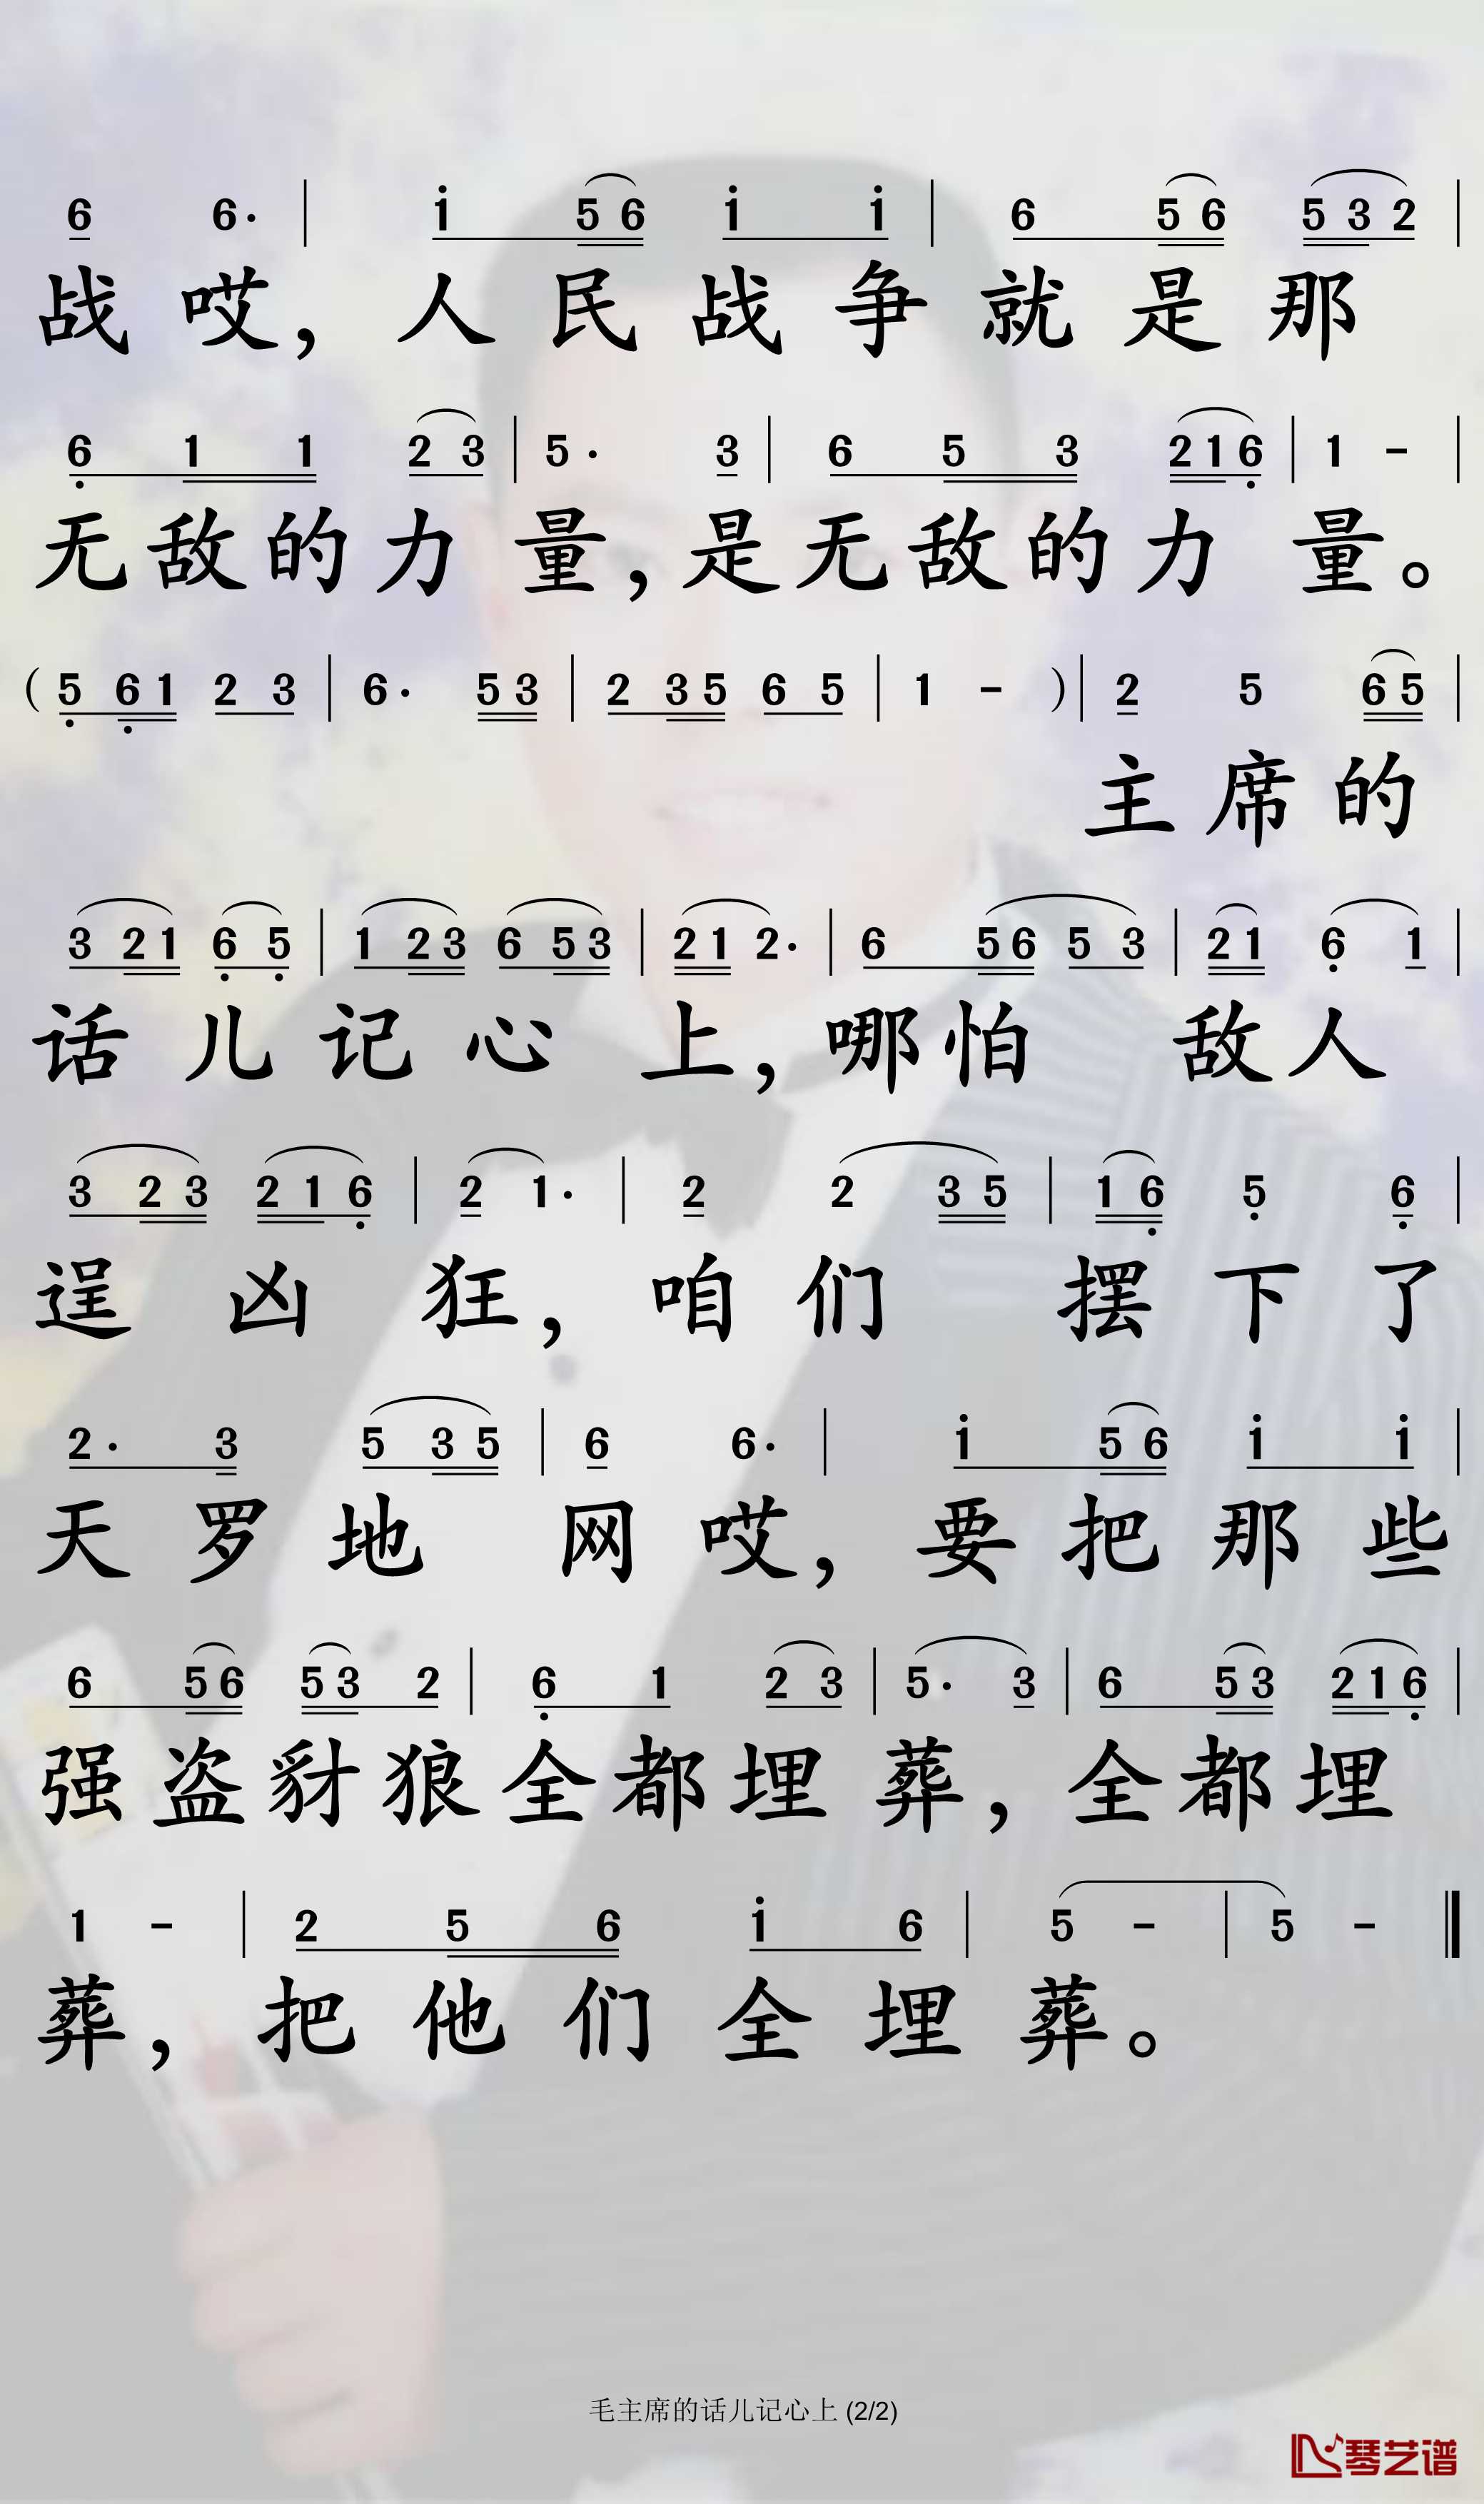 6 6· | i 5 6 i i | 6 5 6 5 3 2 |
战 哎， 人 民 战 争 就 是 那
6 1 1 2 3 | 5· 3 | 6 5 3 2 1 6 | 1 - |
无 敌 的 力 量，是 无 敌 的 力 量。
( 5 6 1 2 3 | 6· 5 3 | 2 3 5 6 5 | 1 - ) | 2 5 6 5 |
主 席 的
3 2 1 6 5 | 1 2 3 6 5 3 | 2 1 2· | 6 5 6 5 3 | 2 1 6 1 |
话 儿 记 心 上，哪 怕 敌 人
3 2 3 2 1 6 | 2 1· | 2 2 3 5 | 1 6 5 6 |
逞 凶 狂，咱 们 摆 下 了
2· 3 5 3 5 | 6 6· | i 5 6 i i |
天 罗 地 网 哎，要 把 那 些
6 5 6 5 3 2 | 6 1 2 3 | 5· 3 | 6 5 3 2 1 6 |
强 盗 豺 狼 全 都 埋 葬，全 都 埋
1 - | 2 5 6 i 6 | 5 - | 5 - ‖
葬，把 他 们 全 埋 葬。
毛主席的话儿记心上 (2/2)
琴艺谱